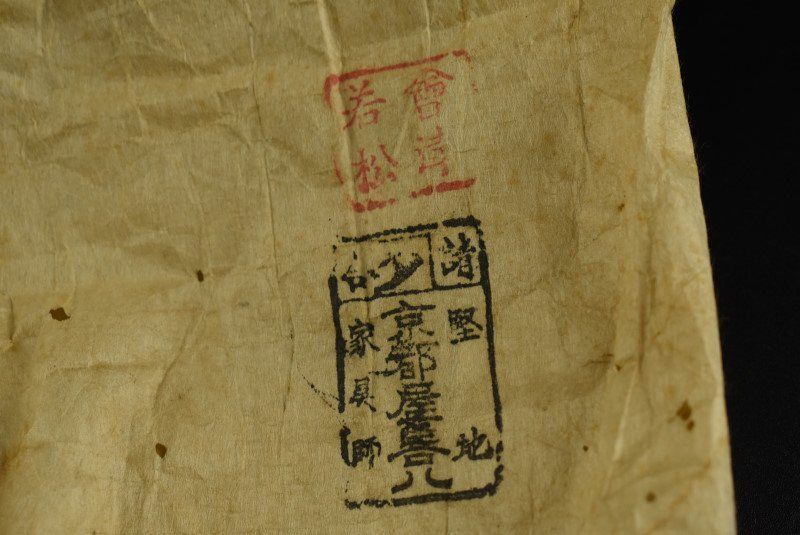 會津
若松
諸堅地
京都屋喜八
家具師